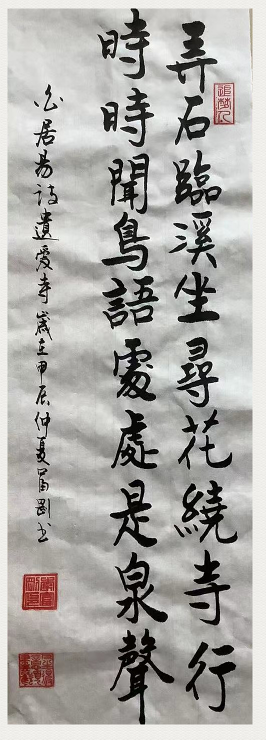 弄石臨溪坐尋花繞寺行
時時聞鳥語處處是泉聲
白居易詩遺愛寺歲在甲辰仲夏富剛书